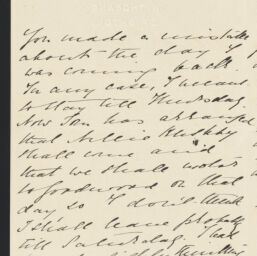 You made a mistake
about the day I
was coming back
In any case, I meant
to stay till Thursday.
Now has arranged
that Nellie
shall come and
that we shall
to Goodwood on that
day so I don't think
I shall leave
till Saturday. I had